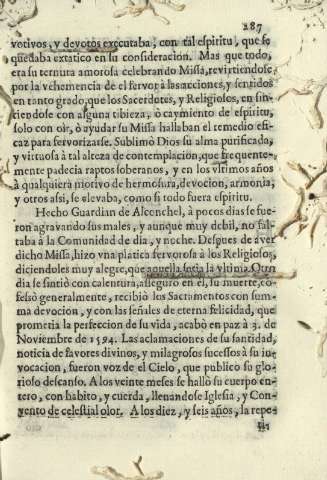 287
votivos, y devotos executaba, con tal espiritu, que se
quedaba extatico en su consideracion. Mas que todo,
era su ternura amorosa celebrando Missa, revirtiendose
por la vehemencia de el fervor à las acciones, y sentidos
en tanto grado, que los Sacerdotes, y Religiosos, en sin-
tiendose con alguna tibieza, ò caymiento de espiritu,
solo con oir, ò ayudar su Missa hallaban el remedio efi-
caz para fervorizarse. Sublimò Dios su alma purificada,
y virtuosa à tal alteza de contemplacion, que frequente-
mente padecia raptos soberanos, y en los vltimos años
à qualquiera motivo de hermosura, devocion, armonia,
y otros assi, se elevaba, como si todo fuera espiritu.
Hecho Guardian de Alconchel, à pocos dias se fue-
ron agravando sus males, y aunque muy debil, no fal-
taba à la Comunidad de dia, y noche. Despues de aver
dicho Missa, hizo vna platica fervorosa à los Religiosos,
diciendoles muy alegre, que aquella seria la vltima. Otro
dia se sintiò con calentura, asseguro en èl, su muerte, co-
fesò generalmente, recibiò los Sacramentos con sum-
ma devocion, y con las señales de eterna felicidad, que
prometia la perfeccion de su vida, acabò en paz à 3. de
Noviembre de 1594. Las aclamaciones de su santidad,
noticia de favores divinos, y milagrosos sucessos à su in-
vocacion, fueron voz de el Cielo, que publicò su glo-
rioso descanso. A los veinte meses se hallò su cuerpo en-
tero, con habito, y cuerda, llenandose Iglesia, y Con-
vento de celestial olor. A los diez, y seis años, la repe-